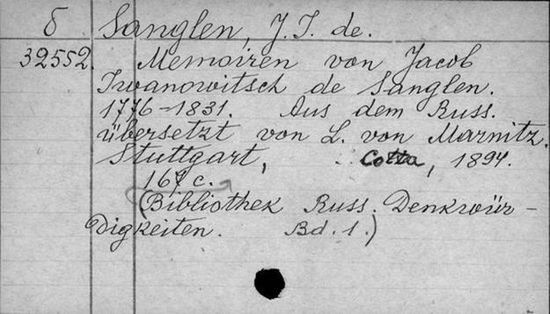 δ Sanglen, J. I. de.
32552. Memoiren von Jacob
Iwanowitsch de Sanglen.
1776-1831. Aus dem Russ.
übersetzt von L. von Marnitz.
Stuttgart, Cotta, 1894.
167 c.
(Bibliothek Russ. Denkwür-
digkeiten. Bd. 1.)